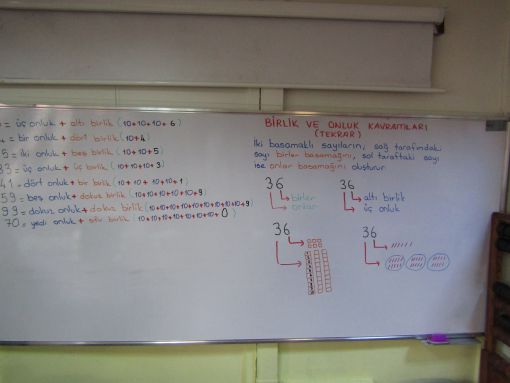 = üç onluk + altı birlik (10+10+10+6)
= bir onluk + dört birlik (10+4)
5 = iki onluk + beş birlik (10+10+5)
33 = üç onluk + üç birlik (10+10+10+3)
41 = dört onluk + bir birlik (10+10+10+10+1)
59 = beş onluk + dokuz birlik (10+10+10+10+10+9)
99 = dokuz onluk + dokuz birlik (10+10+10+10+10+10+10+10+10+9)
70 = yedi onluk + sıfır birlik (10+10+10+10+10+10+10+0)
BİRLİK VE ONLUK KAVRAMLARI
(TEKRAR)
İki basamaklı sayıların, sağ tarafındaki
sayı birler basamağını, sol taraftaki sayı
ise onlar basamağını oluşturur.
36
birler
onlar
36
altı birlik
üç onluk
36
36